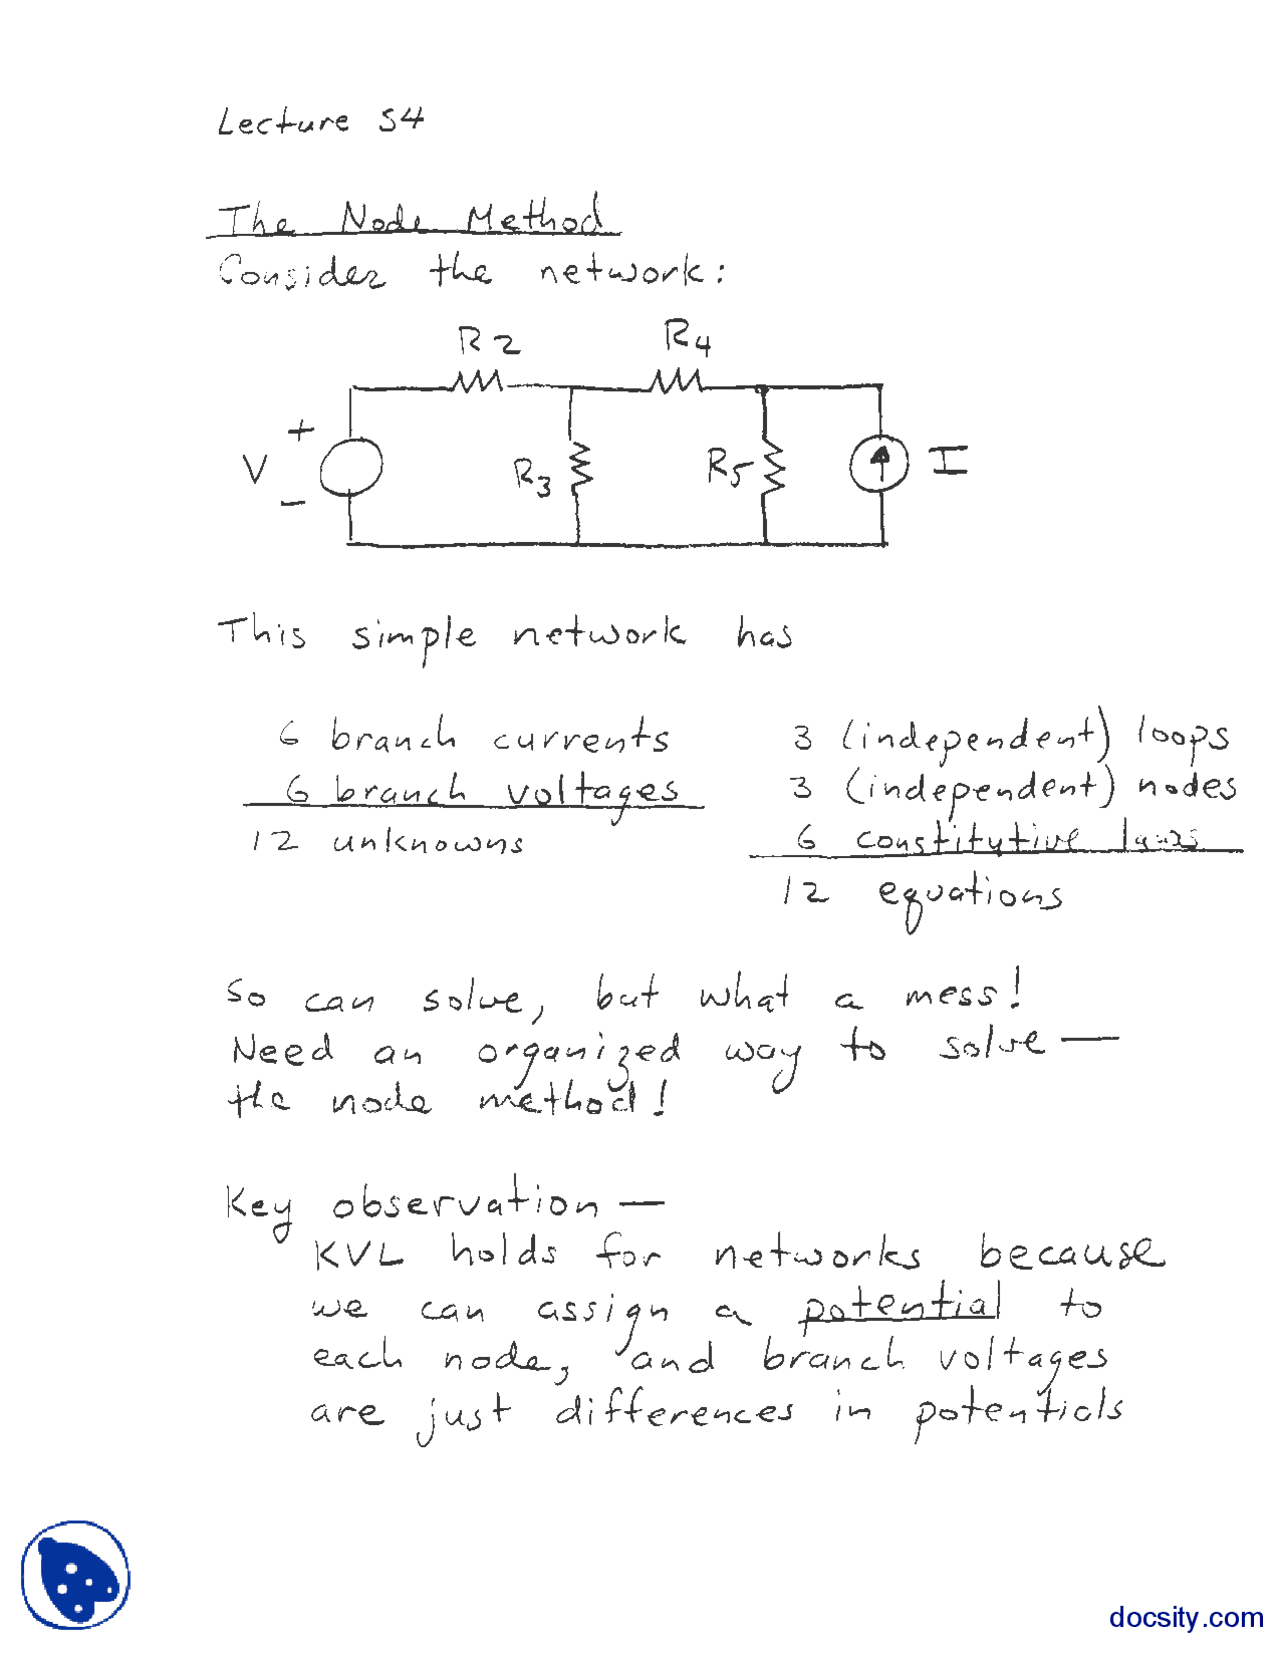 Lecture S4
The Node Method
Consider the network:
R2
R4
+
V
R3
R5
I
-
This simple network has
6 branch currents 3 (independent) loops
6 branch voltages 3 (independent) nodes
12 unknowns 6 constitutive laws
12 equations
So can solve, but what a mess!
Need an organized way to solve —
the node method!
Key observation —
KVL holds for networks because
we can assign a potential to
each node, and branch voltages
are just differences in potentials
docsity.com